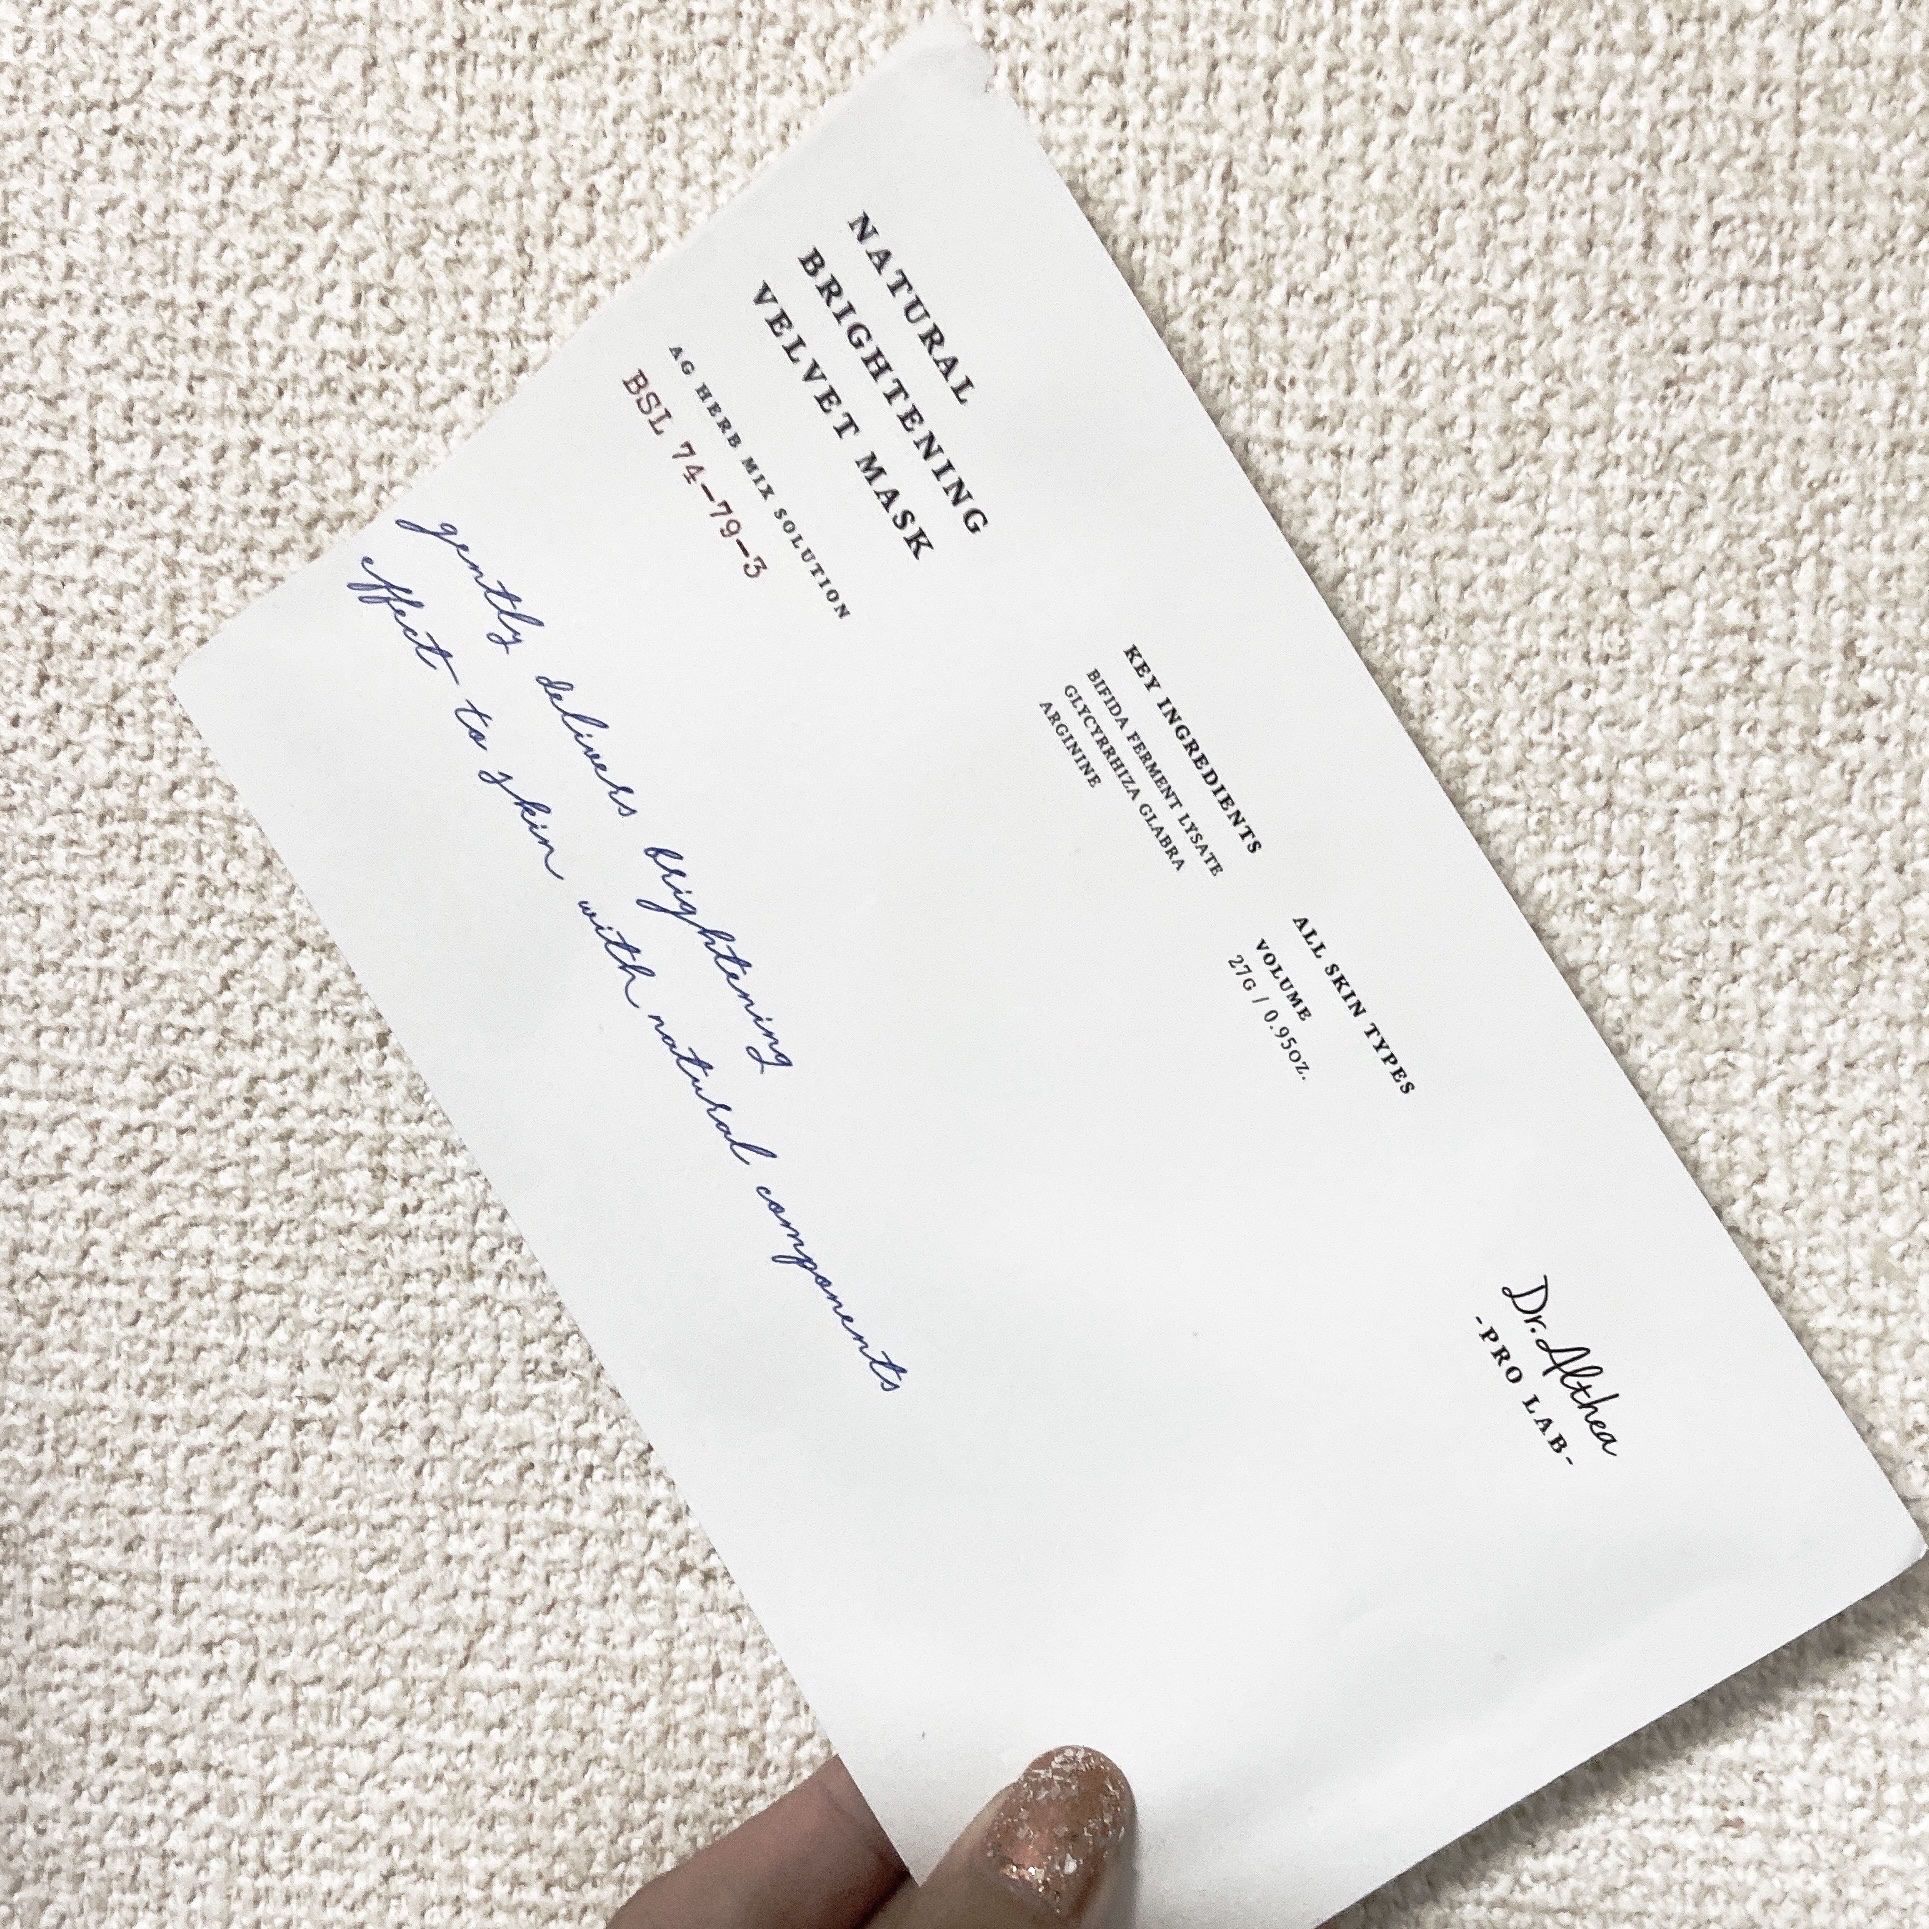 NATURAL
BRIGHTENING
VELVET MASK
AG HERB MIX SOLUTION
BSL 74-79-3
gently delivers brightening
effect to skin with natural components
KEY INGREDIENTS
BIFIDA FERMENT LYSATE
GLYCYRRHIZA GLABRA
ARGININE
ALL SKIN TYPES
VOLUME
27G / 0.95OZ.
Dr.Althea
-PRO LAB-